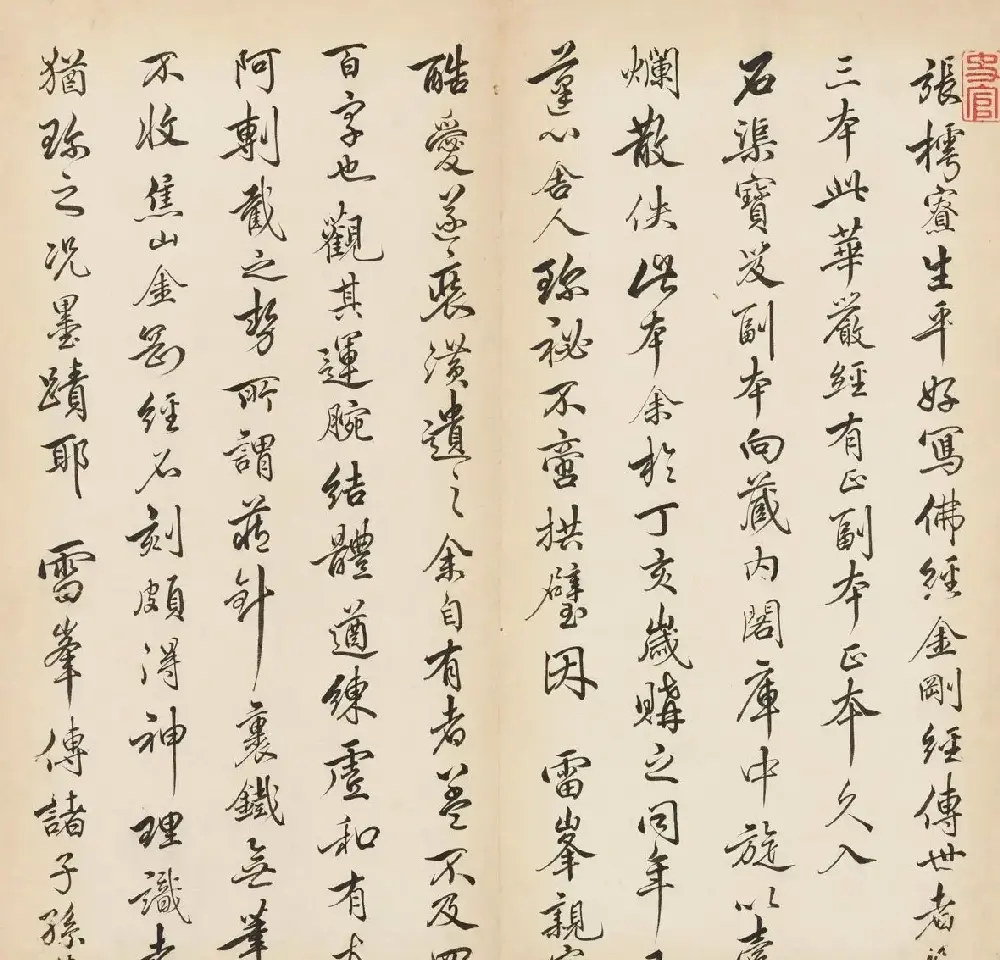 張樗寮生平好寫佛經金剛經傳世者
三本此華嚴經有正副本正本久入
石渠寶笈副本向藏內閣庫中旋以
爛散佚此本余於丁亥歲購之同年
蓬心舍人珍祕不啻拱璧因 雷峯親
酷愛遂裝潢遺之余自有者蓋不及四
百字也觀其運腕結體遒練虛和有
阿剸截之勢所謂針裹鐵無筆
不收焦山金剛經石刻頗得神理識者
猶珍之況墨蹟耶 雷峯傳諸子孫